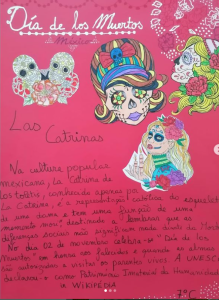 Día de los Muertos
México
Las
Catrinas
Na cultura popular
mexicana, la "Catrina de
los toletes", conhecida apenas por
La Catrina, é a representação do esqueleto
de uma dama e tem uma função de um
memento mori destinado a lembrar que as
diferenças sociais não significam nada diante da Morte.
No dia 02 de novembro celebra-se "Dia de los
Muertos" em honra aos falecidos e quando as almas
são autorizadas a visitar os parentes vivos. A UNESCO
declarou-a como Património Imaterial da Humanidade
in WIKIPÉDIA
7ºC